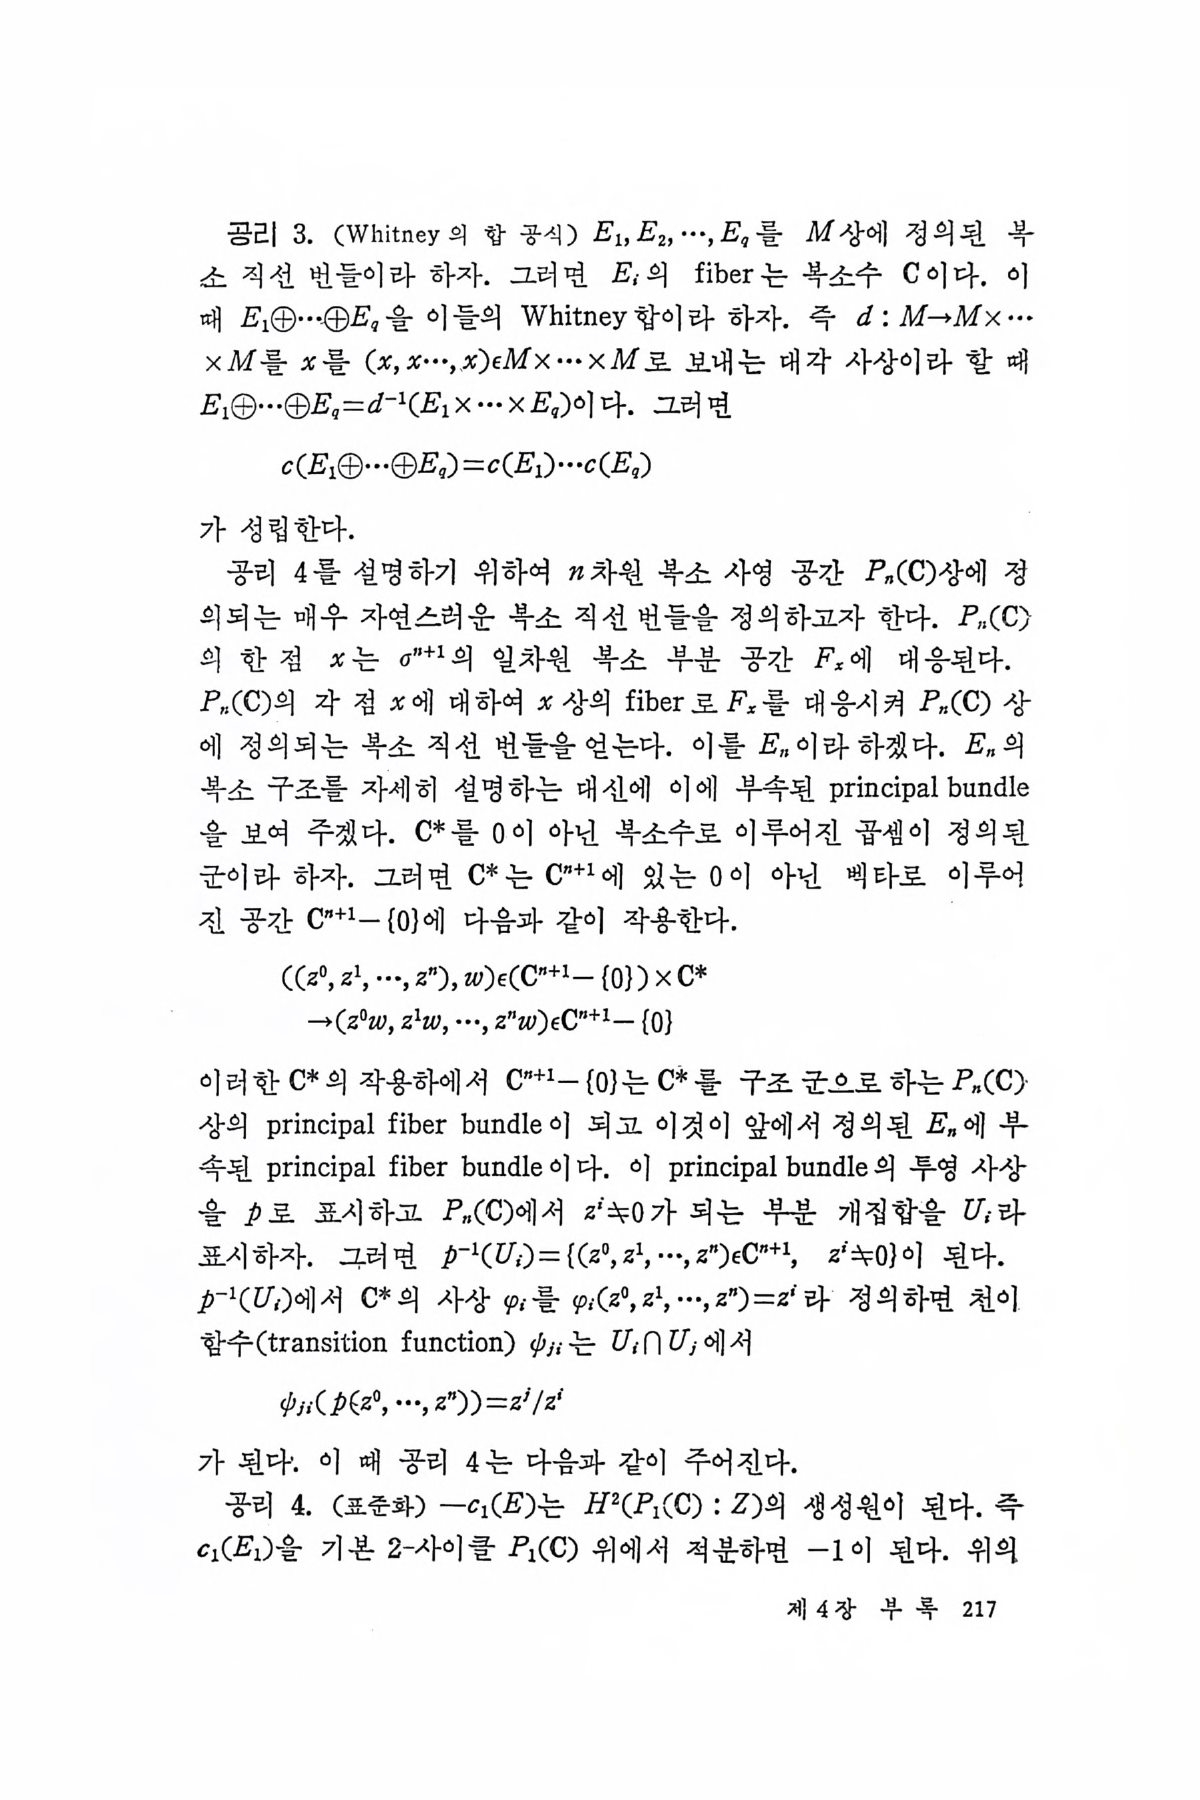 공리 3. (Whitney의 합 공식) E₁, E₂, ⋯, E_q를 M상에 정의된 복
소 직선 번들이라 하자. 그러면 E_i의 fiber는 복소수 C이다. 이
때 E₁⊕⋯⊕E_q을 이들의 Whitney합이라 하자. 즉 d : M→M×⋯
×M를 x를 (x, x⋯, x)ϵM×⋯×M로 보내는 대각 사상이라 할 때
E₁⊕⋯⊕E_q=d⁻¹(E₁×⋯×E_q)이다. 그러면
c(E₁⊕⋯⊕E_q)=c(E₁)⋯c(E_q)
가 성립한다.
공리 4를 설명하기 위하여 n차원 복소 사영 공간 Pₙ(C)상에 정
의되는 매우 자연스러운 복소 직선 번들을 정의하고자 한다. Pₙ(C)
의 한 점 x는 σⁿ⁺¹의 일차원 복소 부분 공간 F_x에 대응된다.
Pₙ(C)의 각 점 x에 대하여 x 상의 fiber로 F_x를 대응시켜 Pₙ(C) 상
에 정의되는 복소 직선 번들을 얻는다. 이를 Eₙ이라 하겠다. Eₙ의
복소 구조를 자세히 설명하는 대신에 이에 부속된 principal bundle
을 보여 주겠다. C*를 0이 아닌 복소수로 이루어진 곱셈이 정의된
군이라 하자. 그러면 C*는 Cⁿ⁺¹에 있는 0이 아닌 벡타로 이루어
진 공간 Cⁿ⁺¹−{0}에 다음과 같이 작용한다.
((z⁰, z¹, ⋯, zⁿ), w)ϵ(Cⁿ⁺¹−{0})×C*
→(z⁰w, z¹w, ⋯, zⁿw)ϵCⁿ⁺¹−{0}
이러한 C*의 작용하에서 Cⁿ⁺¹−{0}는 C*를 구조 군으로 하는 Pₙ(C)
상의 principal fiber bundle이 되고 이것이 앞에서 정의된 Eₙ에 부
속된 principal fiber bundle이다. 이 principal bundle의 투영 사상
을 p로 표시하고 Pₙ(C)에서 zⁱ≠0가 되는 부분 개집합을 U_i라
표시하자. 그러면 p⁻¹(U_i)={(z⁰, z¹, ⋯, zⁿ)ϵCⁿ⁺¹, zⁱ≠0}이 된다.
p⁻¹(U_i)에서 C*의 사상 φ_i를 φ_i(z⁰, z¹, ⋯, zⁿ)=zⁱ라 정의하면 천이
함수(transition function) ψ_ji는 U_i∩U_j에서
ψ_ji(p(z⁰, ⋯, zⁿ))=zʲ/zⁱ
가 된다. 이 때 공리 4는 다음과 같이 주어진다.
공리 4. (표준화) −c₁(E)는 H²(P₁(C) : Z)의 생성원이 된다. 즉
c₁(E₁)을 기본 2-사이클 P₁(C) 위에서 적분하면 −1이 된다. 위의
제 4 장 부 록 217